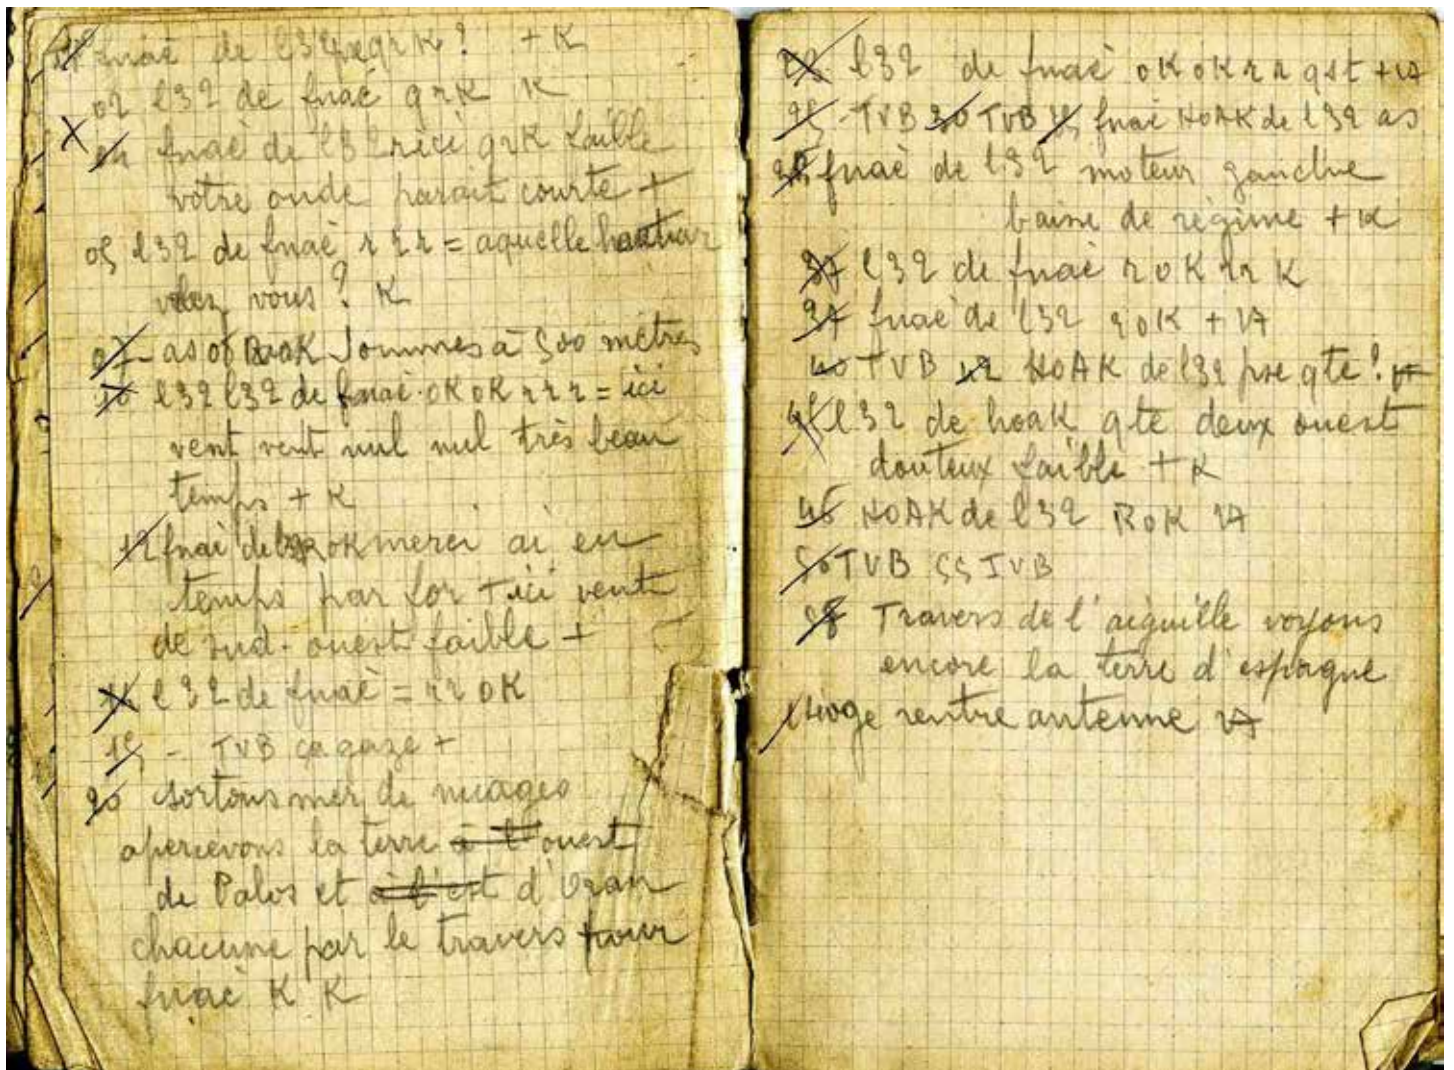 fnaè de l32 pse qrk? + K
02 l32 de fnaè qrk K
04 fnaè de l32 r ici qrk faible
votre onde parait courte +
05 l32 de fnaè r r r = a quelle hauteur
volez vous? K
07 - as 08 ROK Sommes à 500 mètres
10 l32 l32 de fnaè OK OK r r r = ici
vent vent nul nul très beau
temps + K
12 fnaè de l32 R OK merci ai eu
temps par for + ici vent
de sud-ouest faible +
l32 de fnaè = r r OK
15 - TVB ça gaze +
20 sortons mer de nuages
apercevons la terre à l' ouest
de Palos et à l'est d'Oran
chacune par le travers pour
fnaè K K
l32 de fnaè OK OK r r qst + VA
25 - TVB 30 TVB fnaè HOAK de l32 as
fnaè de l32 moteur gauche
baisse de régime + K
37 l32 de fnaè r OK r r K
37 fnaè de l32 r OK + VA
40 TVB 42 HOAK de l32 pse qte?
45 l32 de hoak qte deux ouest
douteux faible + K
46 HOAK de l32 ROK VA
50 TVB 55 TVB
58 Travers de l'aiguille voyons
encore la terre d'espagne
rentre antenne VA